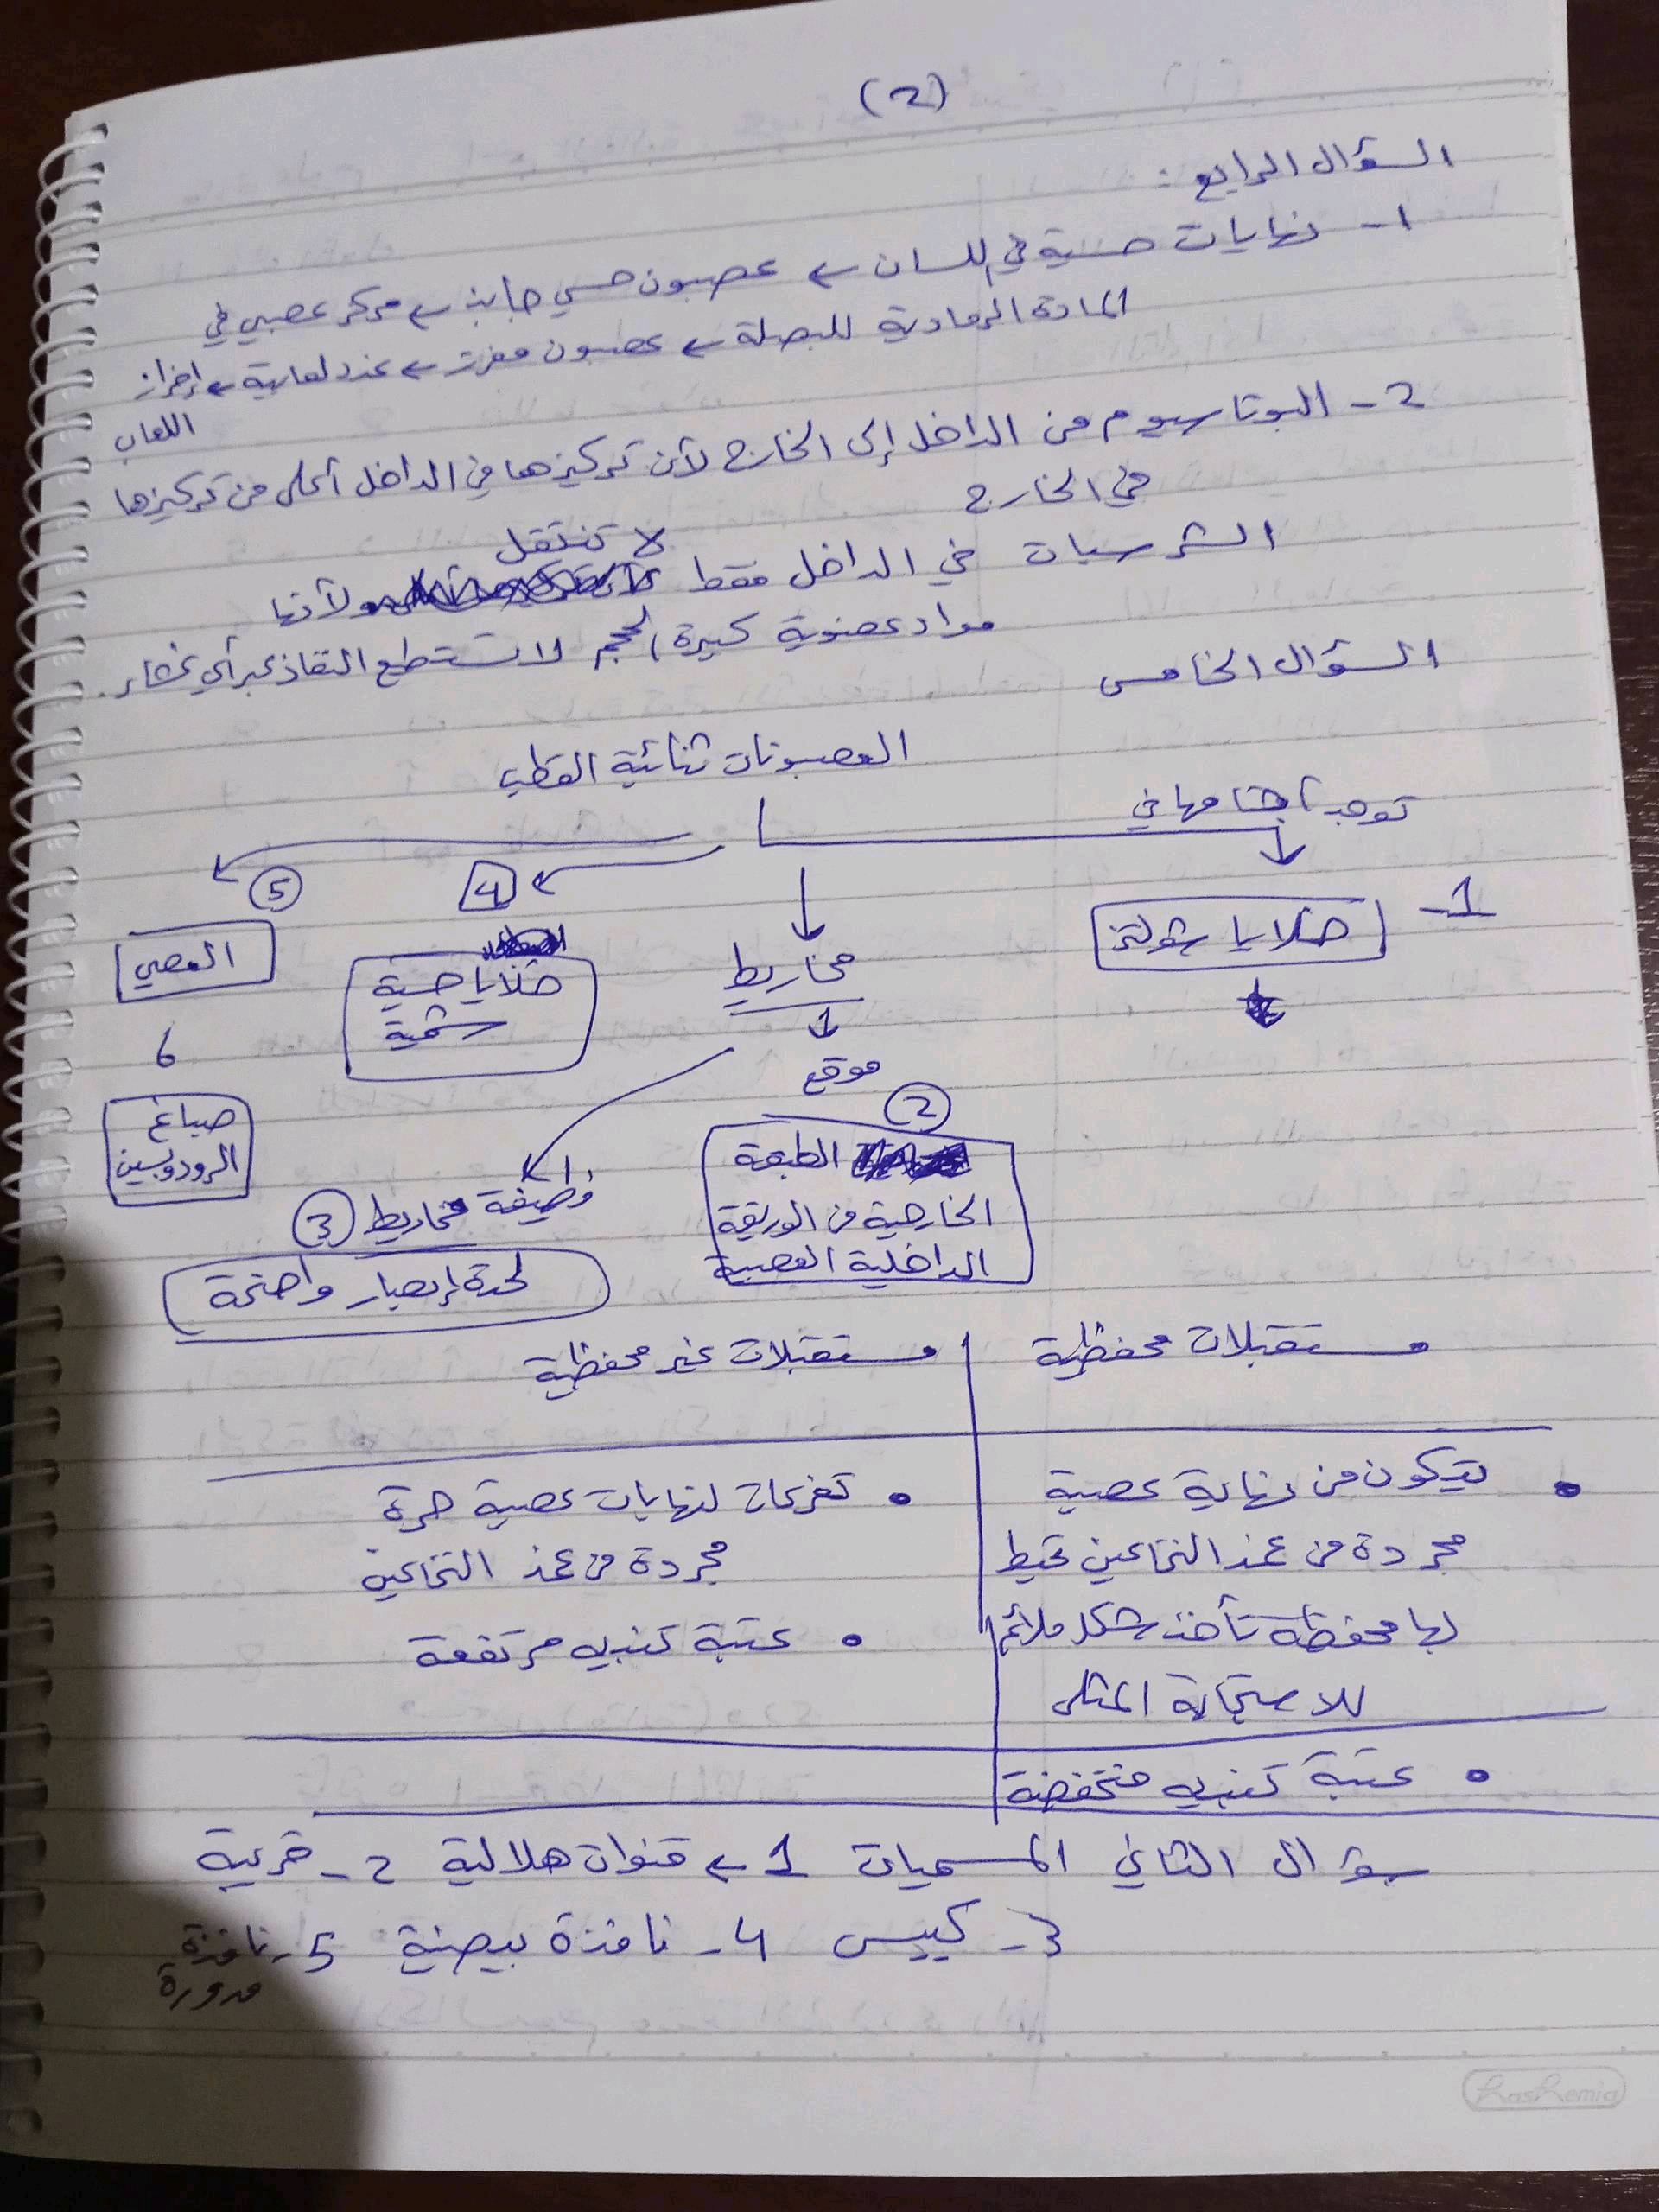 (2)
السؤال الرابع :
1- نهايات حسية في اللسان ← عصبون حسي جابذ ← مركز عصبي في
المادة الرمادية للبصلة ← عصبون مفرز ← غدد لعابية ← إفراز
اللعاب
2- البوتاسيوم من الداخل إلى الخارج لأن تركيزها في الداخل أعلى من تركيزها
في الخارج
الشرسبات في الداخل فقط لا تنتقل ولأنها
مواد عضوية كبيرة الحجم لا تستطع النفاذ عبر أي غشاء.
السؤال الخامس
العصبونات ثنائية القطب
توجد أجسامها في
1- خلايا شولتز
مخاريط
4
خلايا حسية
شمية
5
العصي
موقع
6
صباغ
الرودوبسين
2
الطبقة
الخارجية من الوريقة
الداخلية العصبية
وظيفة مخاريط 3
لحدة إبصار واضحة
مستقبلات محفظية
مستقبلات غير محفظية
• يتكون من نهاية عصبية
مجردة من غمد النخاعين تحيط
لها محفظة تأخذ شكل ملائم
للاستجابة المثلى
• عتبة تنبيه منخفضة
• تفرعات لنهايات عصبية حرة
مجردة من غمد النخاعين
• عتبة تنبيه مرتفعة
سؤال الثاني المسميات 1 ← قنوات هلالية 2- قريبة
3- كييس 4- نافذة بيضية 5- نافذة
مدورة
Hashemia